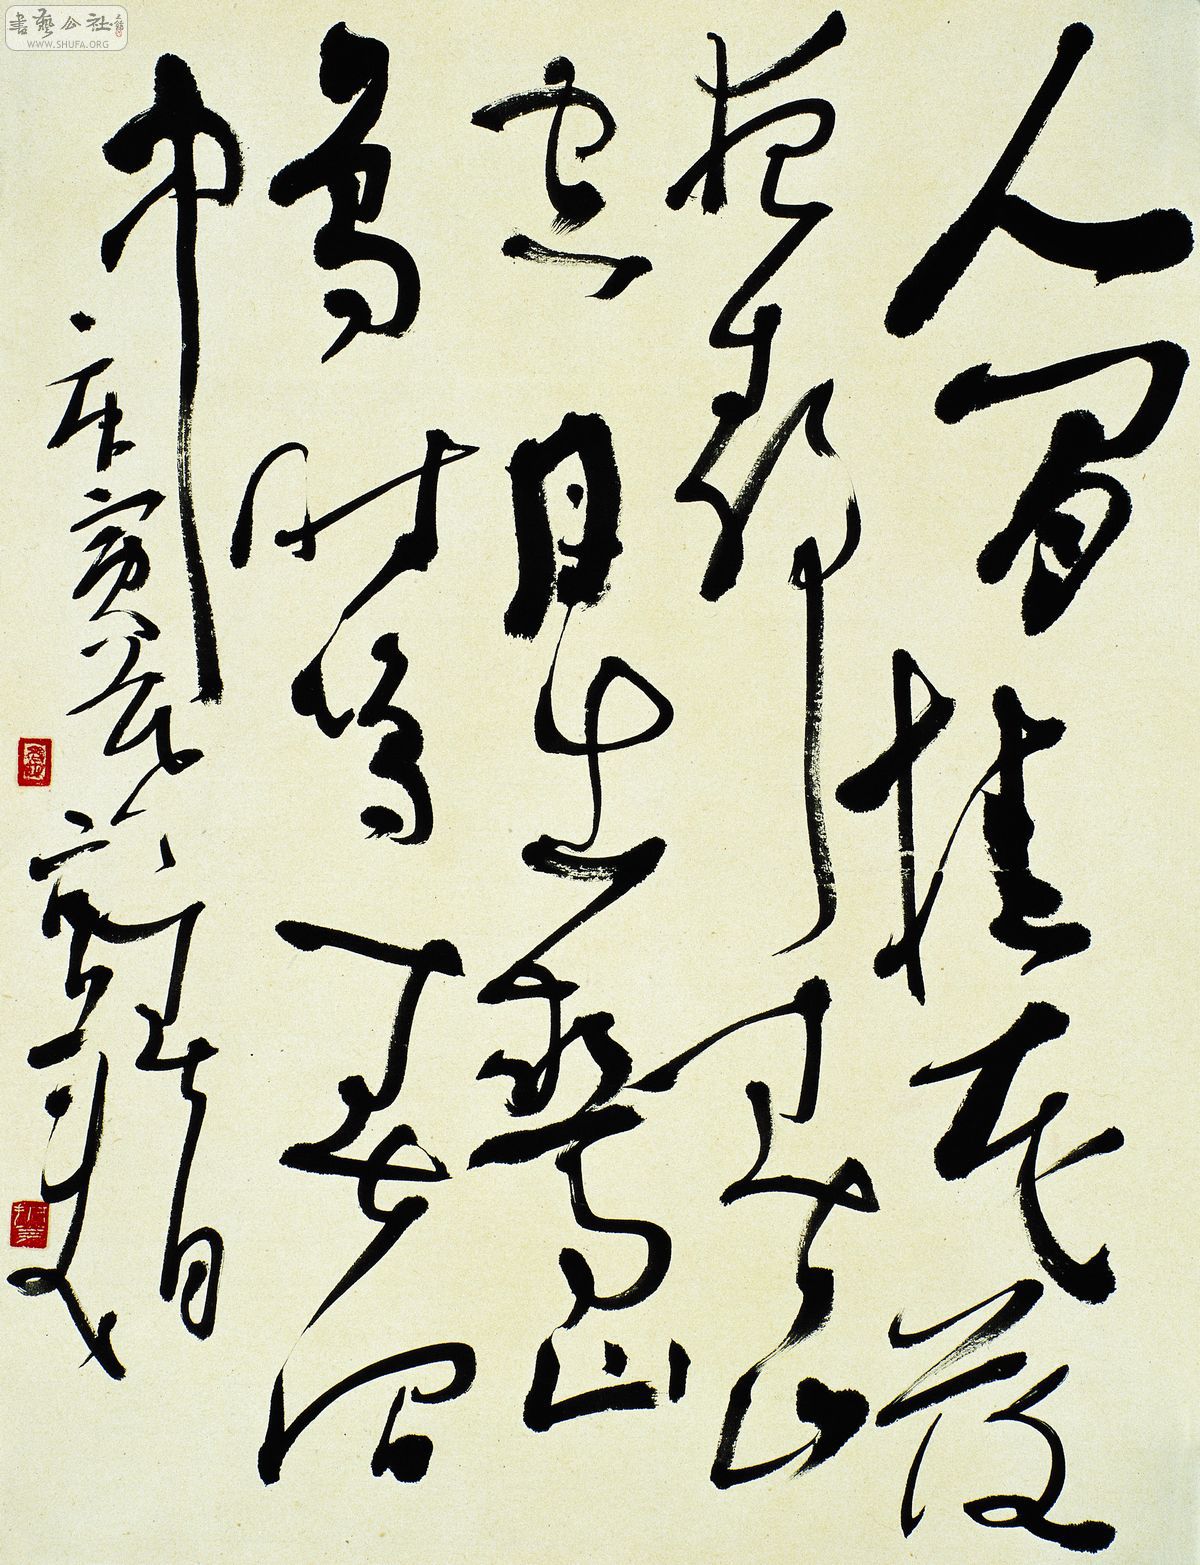 人閒桂花落
夜靜春山
空月出驚山
鳥時鳴春澗
中
庚寅
書藝公社
WWW.SHUFA.ORG